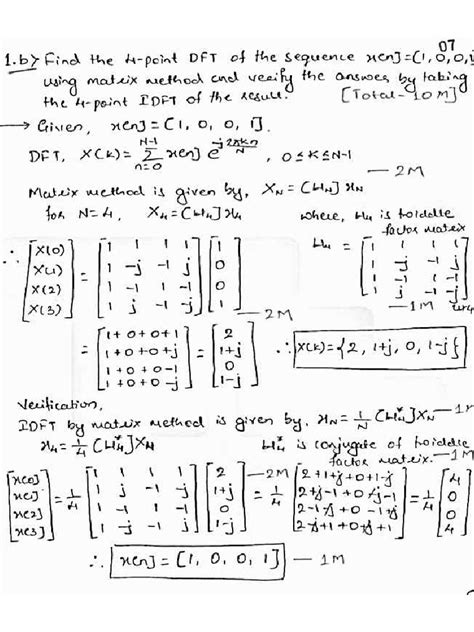 07
1.b) Find the 4-point DFT of the sequence x[n]=(1,0,0,1
using matrix method and verify the answer by taking
the 4-point IDFT of the result. [Total-10M]
→ Given, x[n] = (1, 0, 0, 1].
DFT, X(k) = N-1 Σ n=0 x[n] e^-j2πkn/N, 0≤k≤N-1
— 2M
Matrix method is given by, X_N = [W_N] x_N
for N=4, X_4 = [W_4] x_4 where, W_4 is twiddle
factor matrix
∴ [X(0) X(1) X(2) X(3)] = [1 1 1 1; 1 -j -1 j; 1 -1 1 -1; 1 j -1 -j] [1 0 0 1] W_4 = [1 1 1 1; 1 -j -1 j; 1 -1 1 -1; 1 j -1 -j]
— 2M — 1M
= [1+0+0+1; 1+0+0+j; 1+0+0-1; 1+0+0-j] = [2; 1+j; 0; 1-j] ∴ X(k) = {2, 1+j, 0, 1-j}
Verification,
IDFT by matrix method is given by, x_N = 1/N [W_N*] X_N — 1M
x_4 = 1/4 [W_4*] X_4 W_4* is conjugate of twiddle
factor matrix. — 1M
[x[0] x[] x[2] x[3]] = 1/4 [1 1 1 1; 1 j -1 -j; 1 -1 1 -1; 1 -j -1 j] [2; 1+j; 0; 1-j] — 2M = 1/4 [2+1+j+0+1-j; 2+j-1+0-j-1; 2-1-j+0-1+j; 2-j+1+0+j+1] = 1/4 [4; 0; 0; 4]
∴ x[n] = (1, 0, 0, 1] — 1M